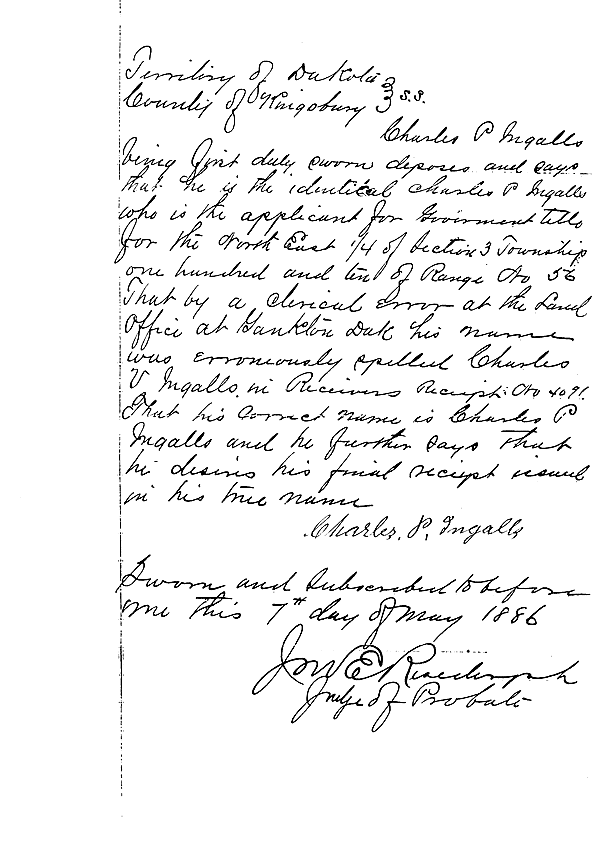 Territory of Dakota } s.s.
County of Kingsbury }
Charles P Ingalls
being first duly sworn deposes and says
that he is the identical Charles P Ingalls
who is the applicant for Goverment title
for the North East 1/4 of Section 3 Township
one hundred and ten of Range No 56
That by a clerical error at the Land
Office at Yankton Dak his name
was erroneously spelled Charles
V Ingalls in Receivers Receipt No 4091.
That his correct name is Charles P
Ingalls and he further says that
he desires his final reciept issued
in his true name
Charles. P. Ingalls
Sworn and Subscribed to before
me this 7th day of May 1886
Judge of Probate